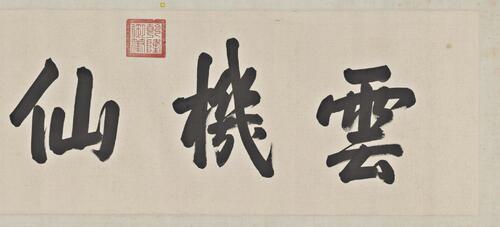 雲機仙